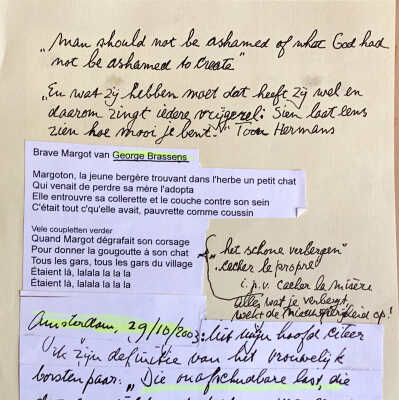 "man should not be ashamed of what God had
not be ashamed to create"
"En wat zij hebben moet dat heeft zij wel en
daarom zingt iedere vrijgezel: Sien laat eens
zien hoe mooi je bent!" Toon Hermans
Brave Margot van George Brassens
Margoton, la jeune bergère trouvant dans l'herbe un petit chat
Qui venait de perdre sa mère l'adopta
Elle entrouvre sa collerette et le couche contre son sein
C'était tout c'qu'elle avait, pauvrette comme coussin
Vele coupletten verder
Quand Margot dégrafait son corsage
Pour donner la gougoutte à son chat
Tous les gars, tous les gars du village
Étaient là, lalala la la la
Étaient là, lalala la la la
"het schone verbergen"
cacher le propre
i.p.v. cacher la misère
alles wat je verbergt
wekt de nieuwsgierigheid op!
Amsterdam, 29/10/2003: uit mijn hoofd citeer
ik zijn definitie van het vrouwelijk
borstenpaar: "Die onafschudbare last, die